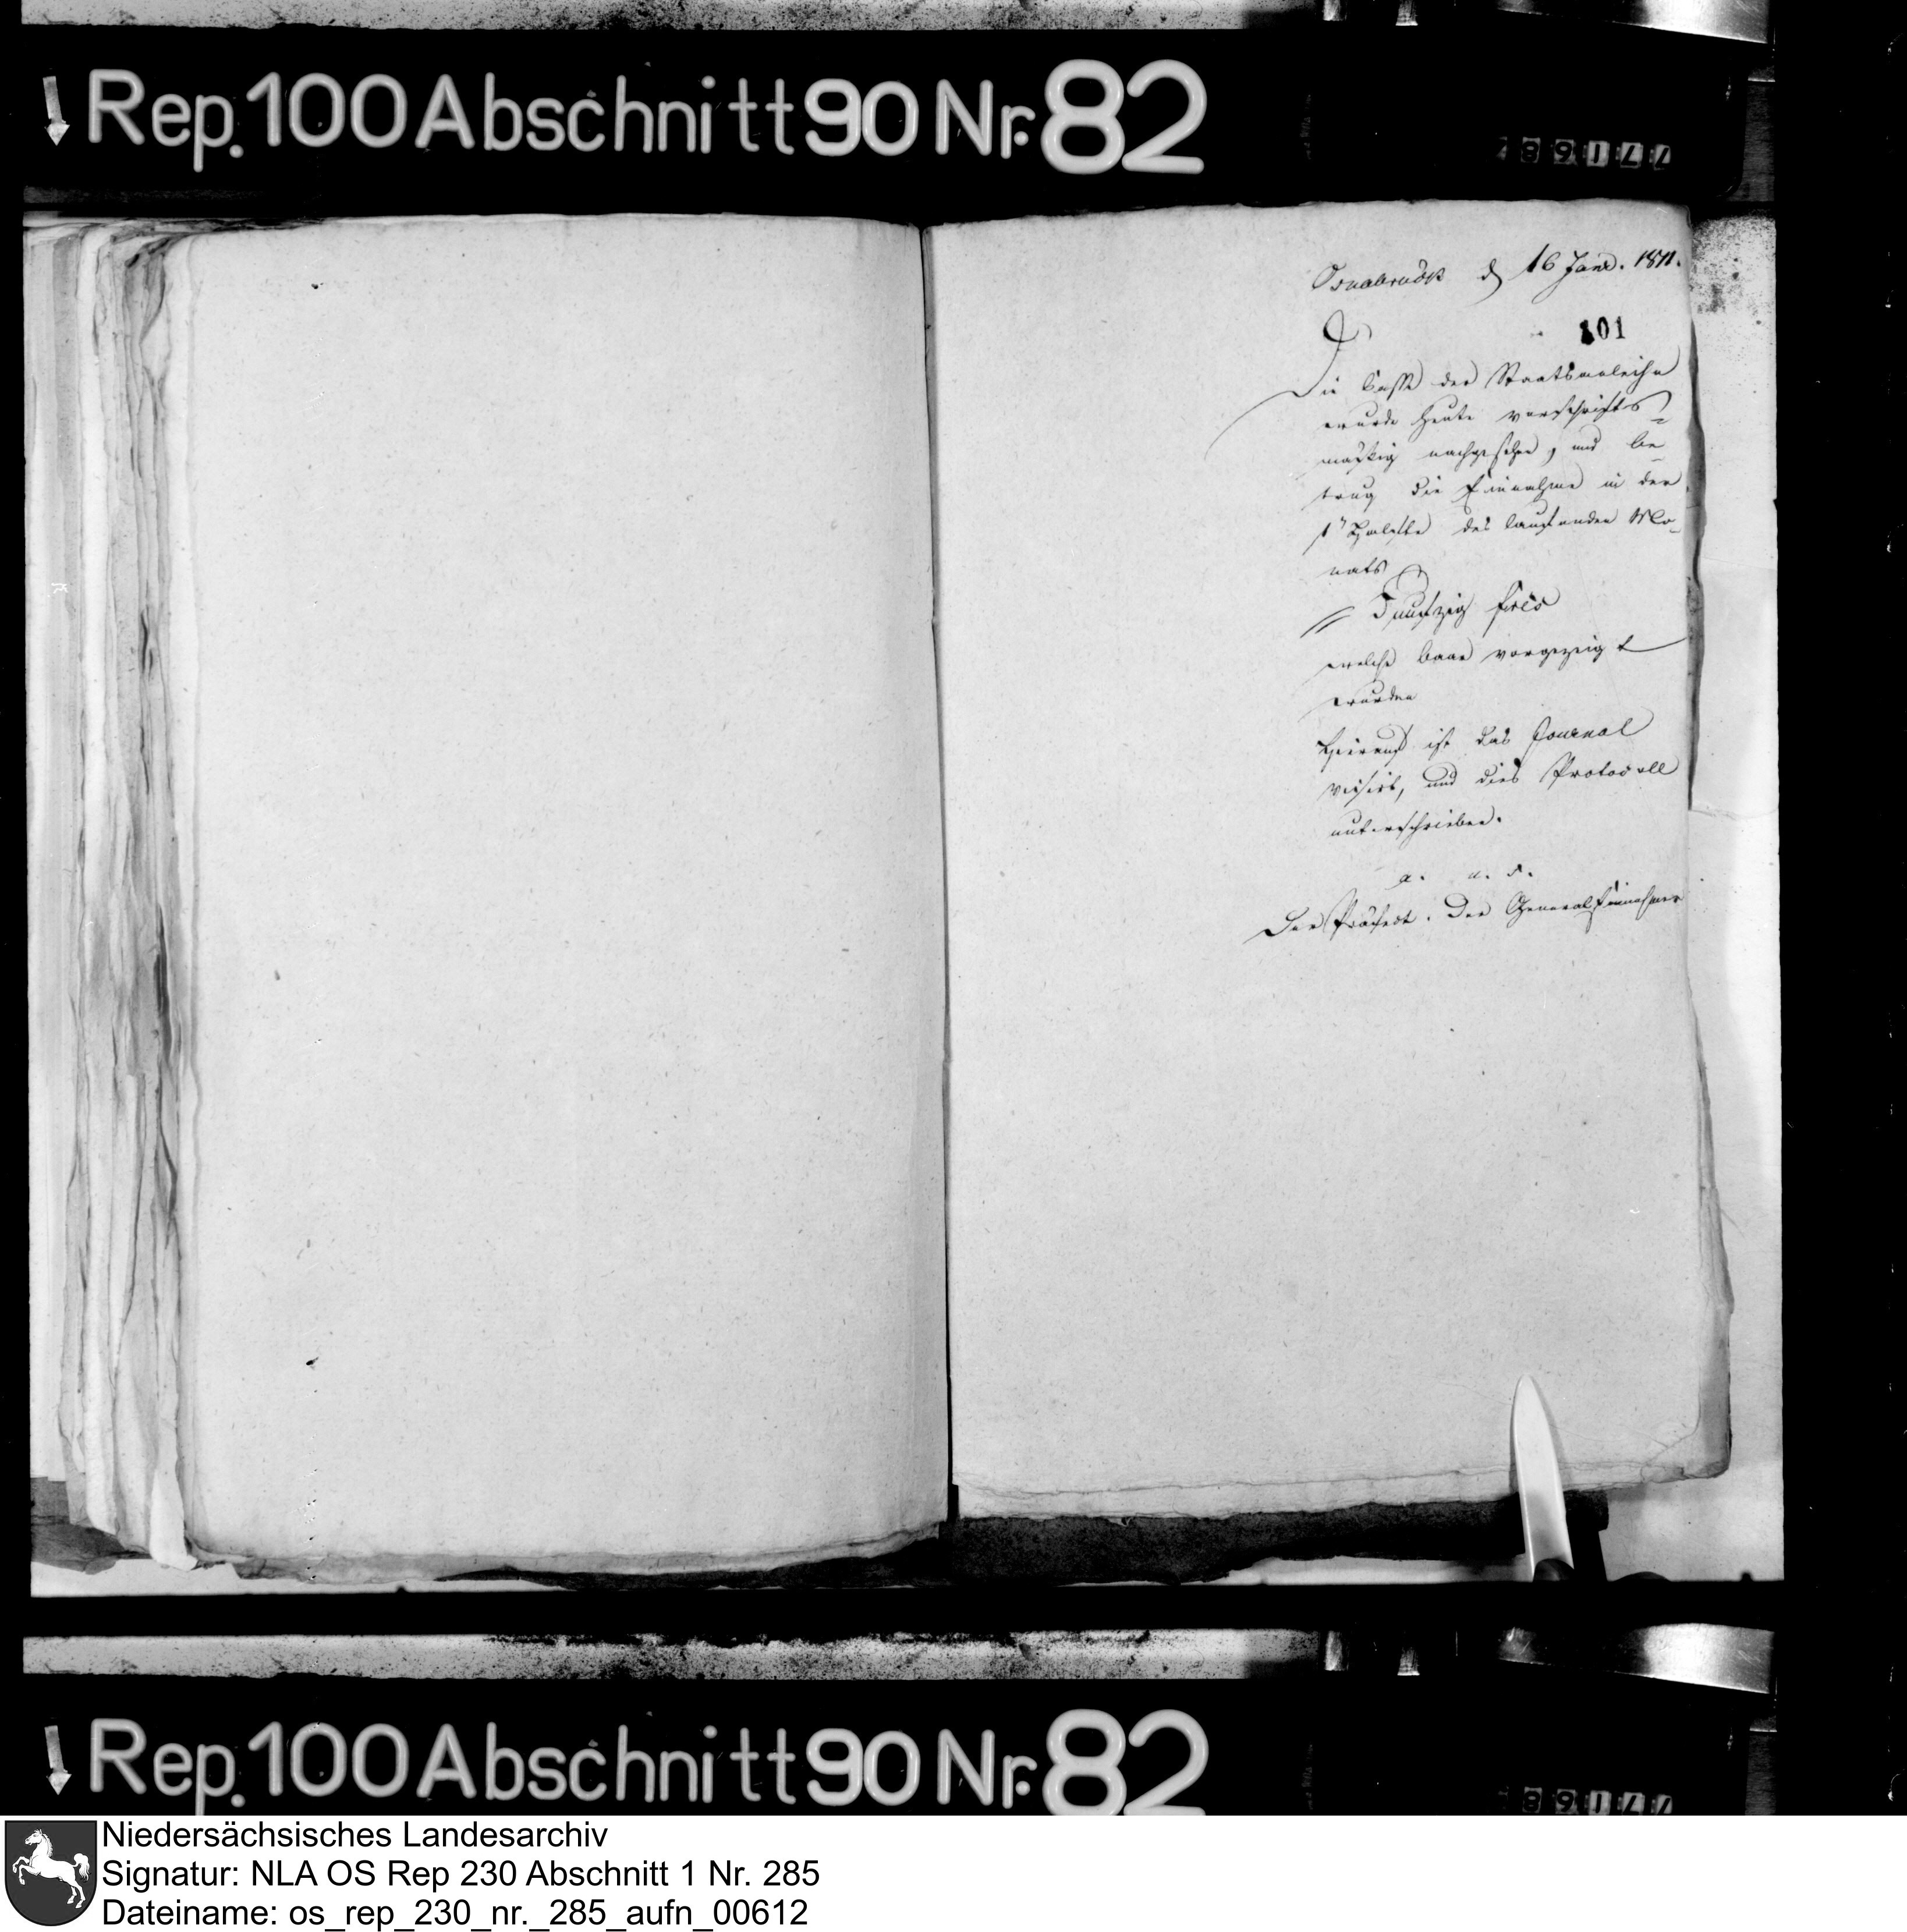 Rep. 100 Abschnitt 90 Nr. 82
Osnabrück d 16 Janr. 1811.
101
Die Casse der Staatsanleihe
wurde heute vorschrifts-
mäßig nachgesehen, und be-
trug die Einnahme in der
1n Hälfte des laufenden Mo-
nats
// Funfzig frcs
welche baar vorgezeigt
wurden
Hierauf ist das Journal
visirt, und dies Protocoll
unterschrieben.
a. u. s.
Der Präfect. Der GeneralEinnehmer
Rep. 100 Abschnitt 90 Nr. 82
Niedersächsisches Landesarchiv
Signatur: NLA OS Rep 230 Abschnitt 1 Nr. 285
Dateiname: os_rep_230_nr._285_aufn_00612